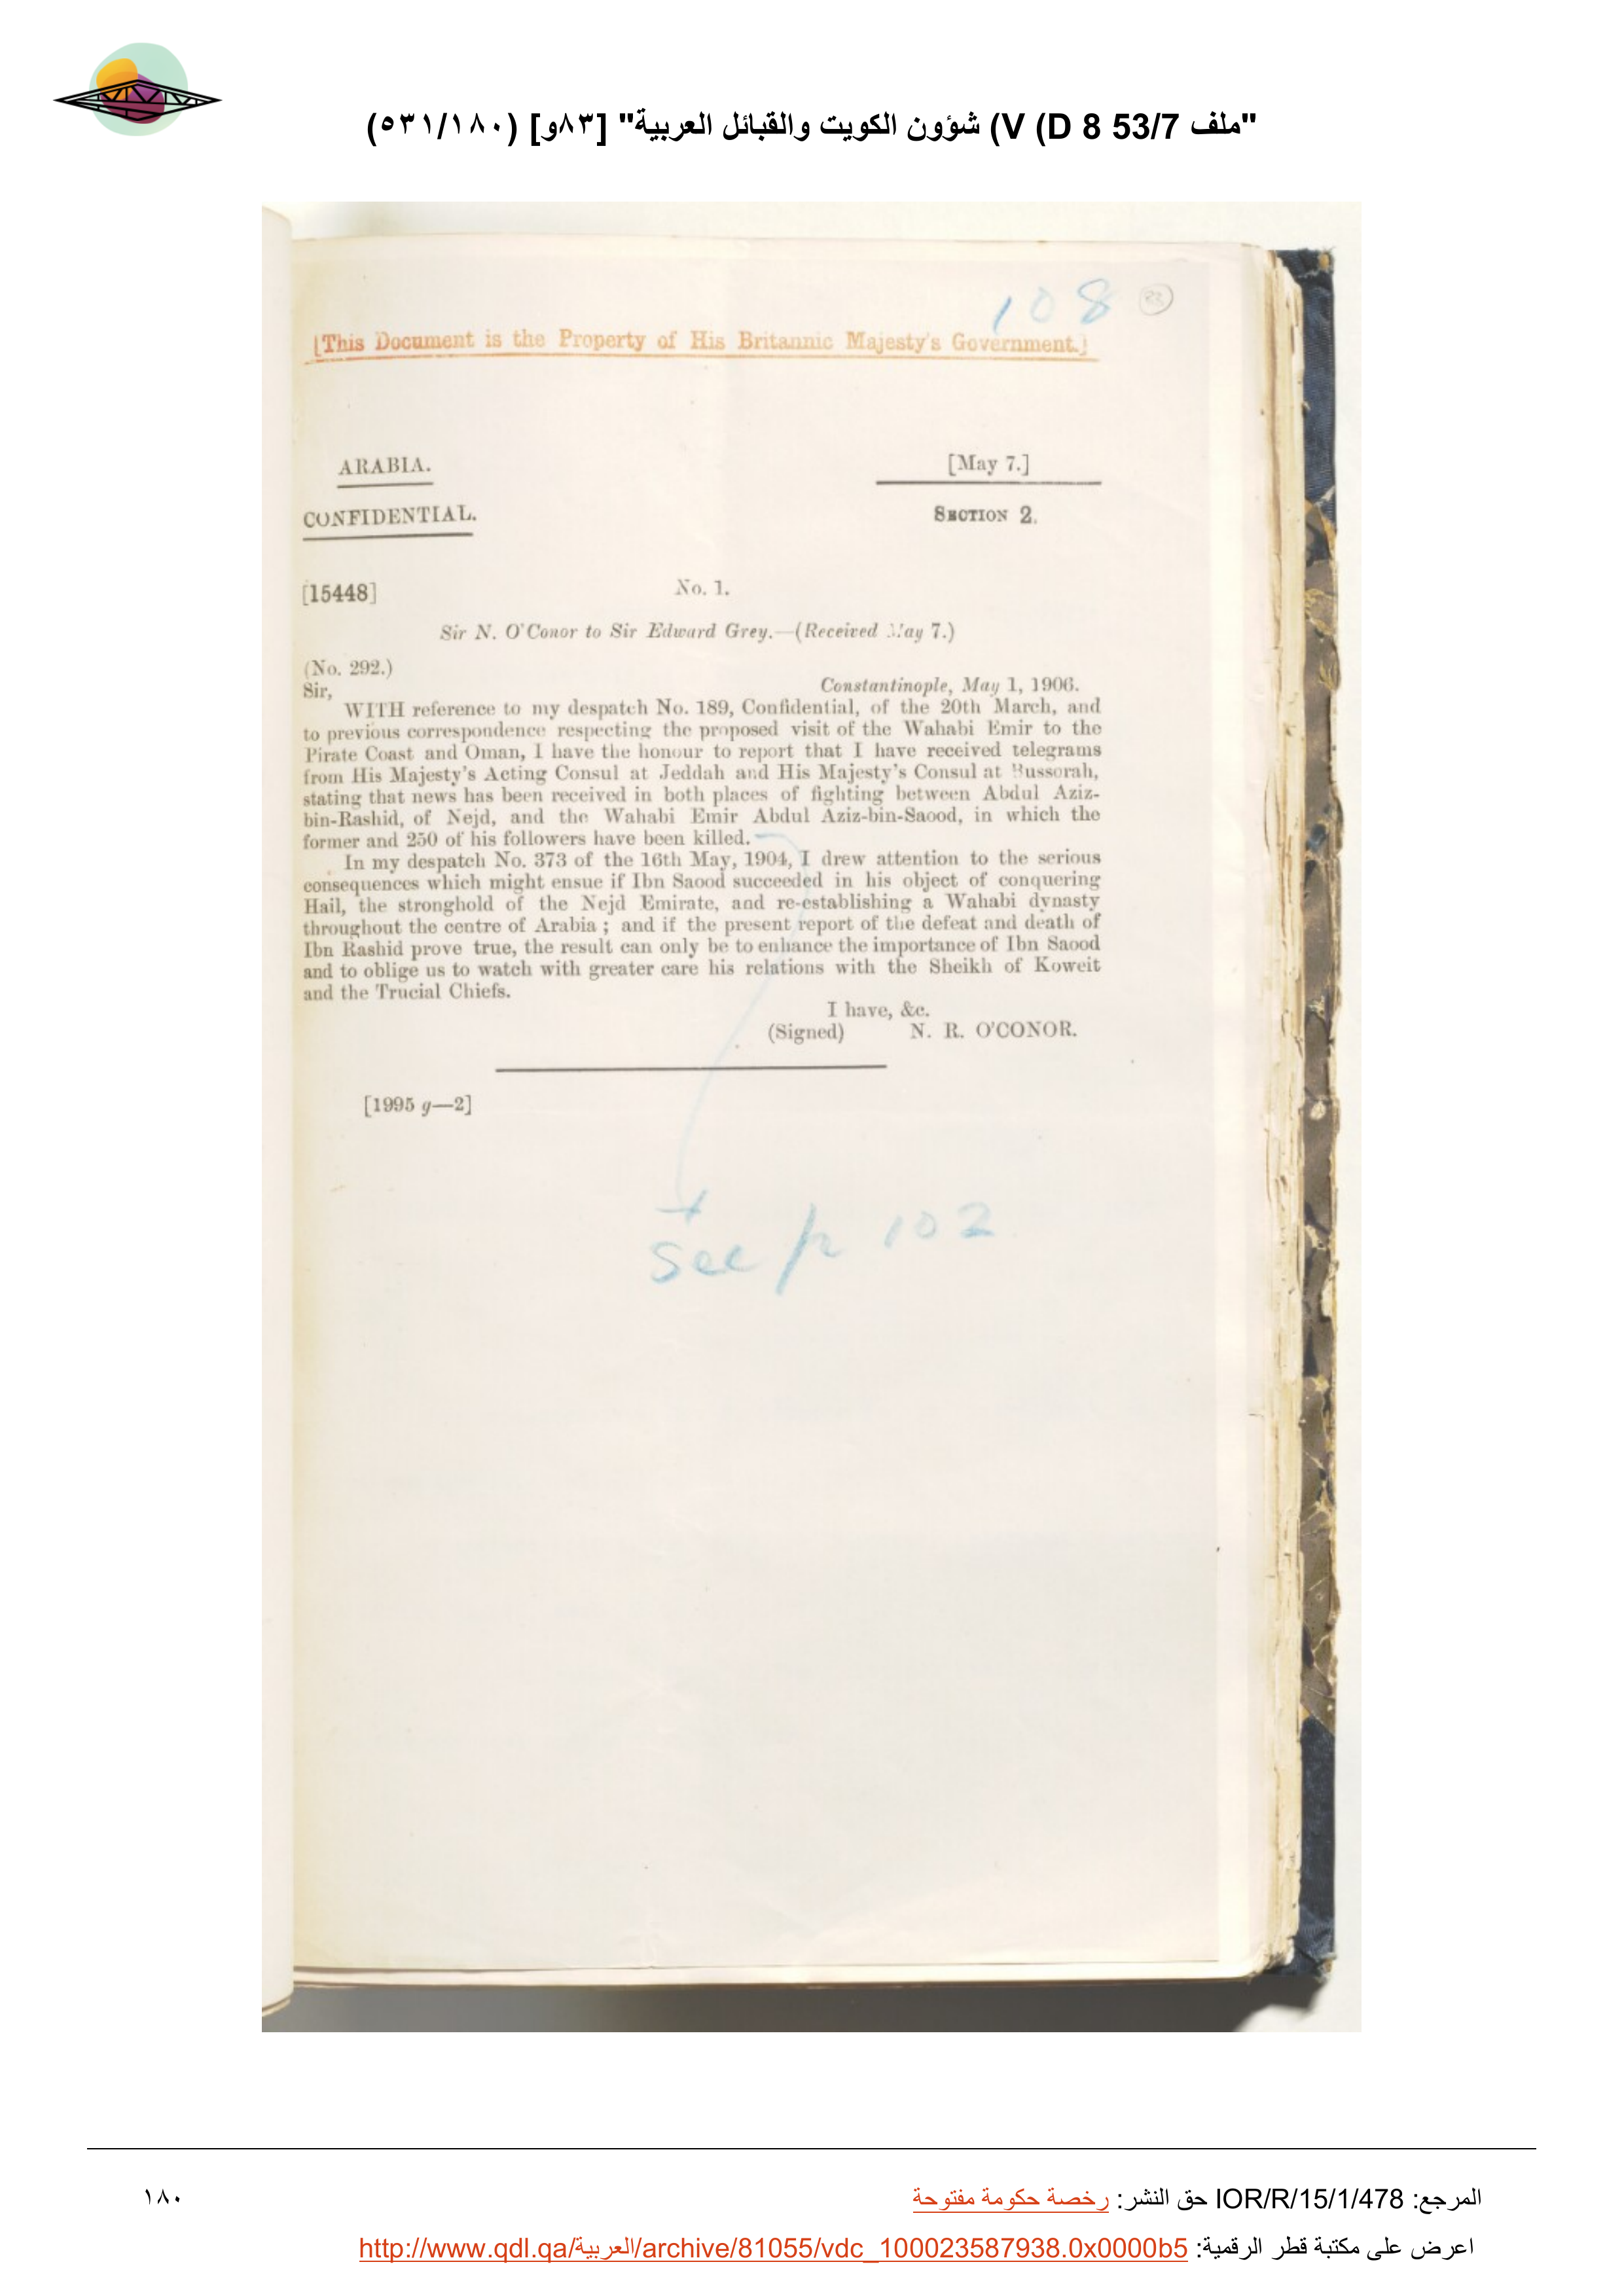 "ملف 53/7 D 8) V) شؤون الكويت والقبائل العربية" [٨٣و] (٥٣١/١٨٠)
108
[This Document is the Property of His Britannic Majesty's Government.]
ARABIA.
[May 7.]
CONFIDENTIAL.
SECTION 2.
[15448]
No. 1.
Sir N. O'Conor to Sir Edward Grey.—(Received May 7.)
(No. 292.)
Sir,
Constantinople, May 1, 1906.
WITH reference to my despatch No. 189, Confidential, of the 20th March, and
to previous correspondence respecting the proposed visit of the Wahabi Emir to the
Pirate Coast and Oman, I have the honour to report that I have received telegrams
from His Majesty's Acting Consul at Jeddah and His Majesty's Consul at Bussorah,
stating that news has been received in both places of fighting between Abdul Aziz-
bin-Rashid, of Nejd, and the Wahabi Emir Abdul Aziz-bin-Saood, in which the
former and 250 of his followers have been killed.
In my despatch No. 373 of the 16th May, 1904, I drew attention to the serious
consequences which might ensue if Ibn Saood succeeded in his object of conquering
Hail, the stronghold of the Nejd Emirate, and re-establishing a Wahabi dynasty
throughout the centre of Arabia ; and if the present report of the defeat and death of
Ibn Rashid prove true, the result can only be to enhance the importance of Ibn Saood
and to oblige us to watch with greater care his relations with the Sheikh of Koweit
and the Trucial Chiefs.
I have, &c.
(Signed) N. R. O'CONOR.
[1995 g—2]
See p 102
المرجع: IOR/R/15/1/478 حق النشر: رخصة حكومة مفتوحة
١٨٠
اعرض على مكتبة قطر الرقمية: http://www.qdl.qa/العربية/archive/81055/vdc_100023587938.0x0000b5